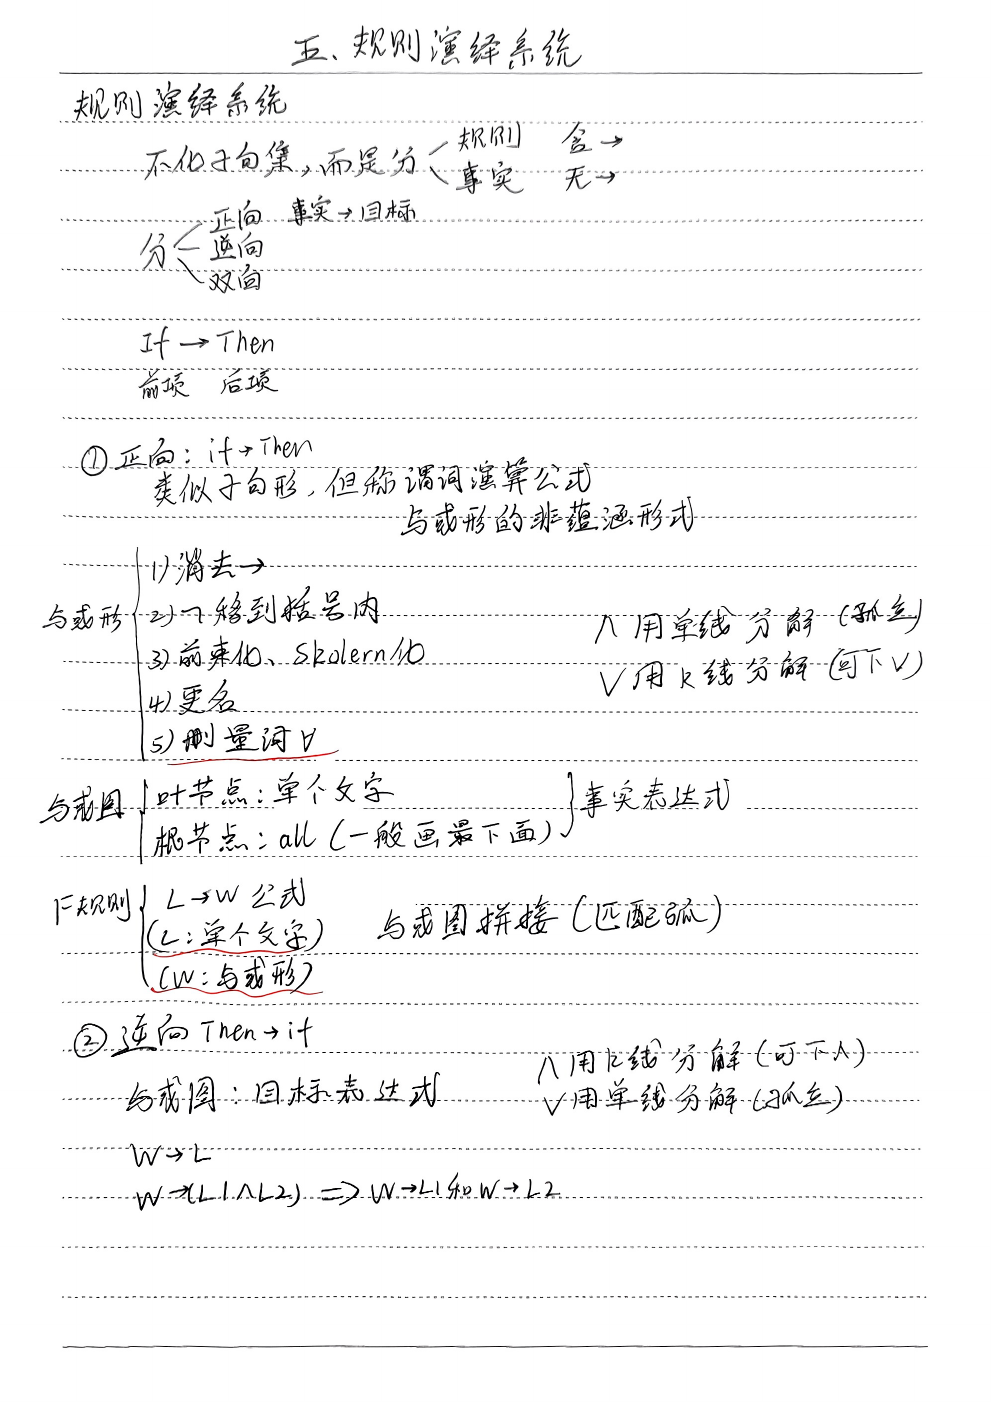 五、规则演绎系统
规则演绎系统
不化子句集，而是分 规则 含→
事实 无→
分 正向 事实→目标
逆向
双向
If → Then
前项 后项
① 正向：if→Then
类似子句形，但称谓词演算公式
与或形的非蕴涵形式
与或形 1) 消去→
2) ¬移到括号内
3) 前束化、Skolem化
4) 更名
5) 删量词∀
∧用单线分解（孤立）
∨用k线分解（可下∨）
与或图 叶节点：单个文字
根节点：all（一般画最下面）
事实表达式
F规则 L→W 公式
（L：单个文字）
（W：与或形）
与或图拼接（匹配弧）
② 逆向 Then→if
与或图：目标表达式
∧用k线分解（可下∧）
∨用单线分解（孤立）
W→L
W→(L1∧L2) => W→L1和W→L2